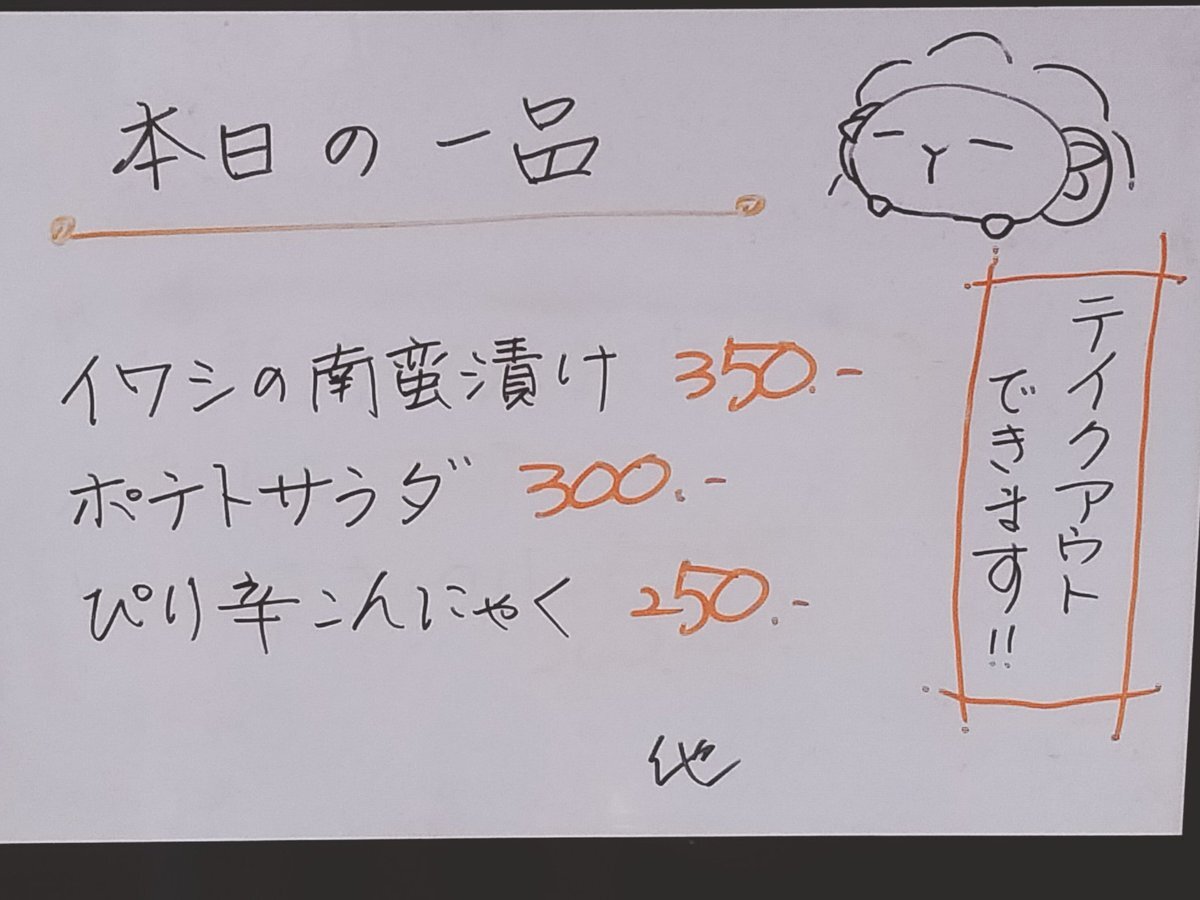 本日の一品
イワシの南蛮漬け 350.-
ポテトサラダ 300.-
ぴり辛こんにゃく 250.-
他
テイクアウト
できます!!